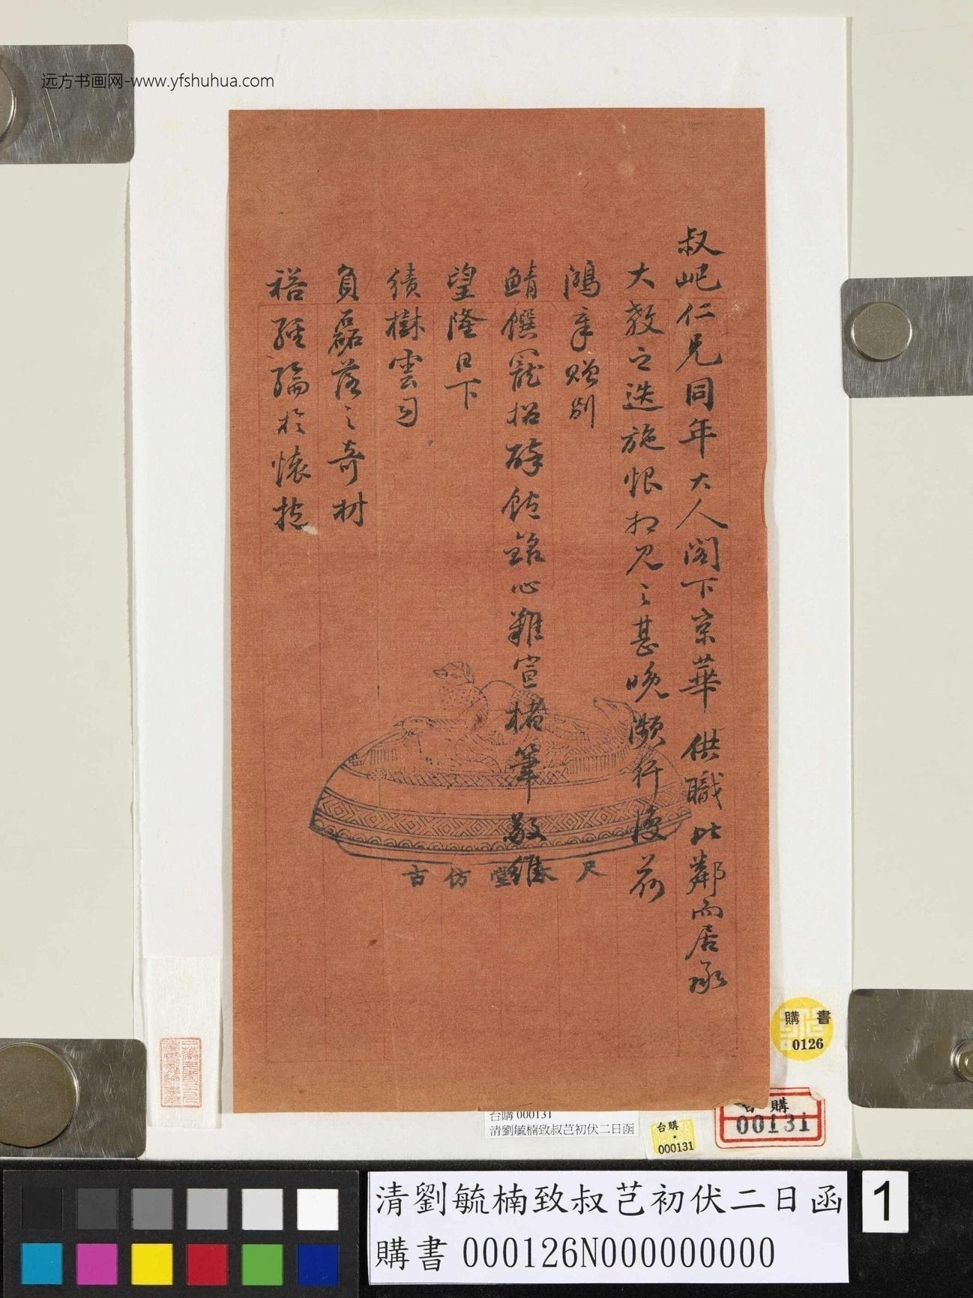 远方书画网-www.yfshuhua.com
叔屺仁兄同年大人閣下京華供職比鄰而居承
大教之迭施恨相見之甚晚瀕行復荷
鴻章贈別
鯖饌寵招醉飽銘心難宣楮筆敬維
望隆日下
績樹雲司
負磊落之奇材
裕經綸於懷抱
尺木堂仿古
購書
0126
台購
00131
台購 000131
清劉毓楠致叔芑初伏二日函
台購
000131
清劉毓楠致叔芑初伏二日函
購書 000126N000000000
1